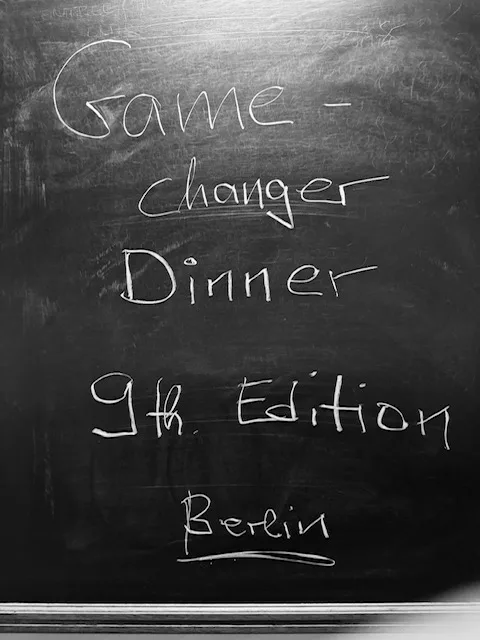 Game-
changer
Dinner
9th. Edition
Berlin